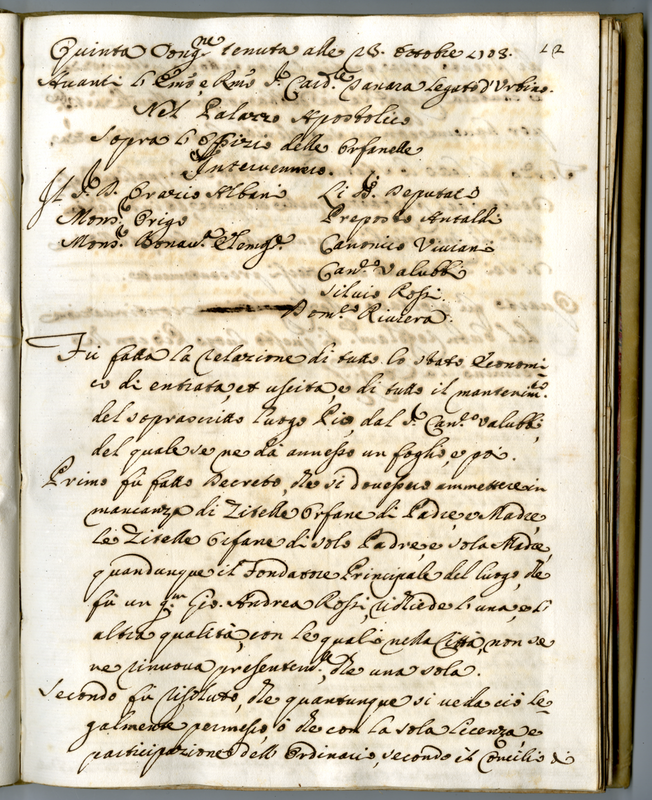 Quinta Cong.ne tenuta alle 28. Ottobre 1708. 12
Avanti l'Emo, e Rmo S.r Card.le Tanara Legato d'Urbino.
Nel Palazzo Apostolico
Sopra l'Offizio delle Orfanelle
Intervennero.
Il S. D. Orazio Albani
Mons.r Origo
Mons.r Bonav.
Li SS. Deputati
Preposto Antaldi
Canonico Viviani
Can.co Valubbi
Silvio Rossi
Dom.co Riviera.
Fù fatta la relazione di tutto lo stato Economi-
co di entrata, et uscita, e di tutto il mantenim.to
del soprascritto luogo Pio, dal S.r Can.co Valubbi,
del quale se ne dà annesso un foglio, e poi.
Primo fù fatto Decreto, che si dovessero ammettere in
mancanza di Zitelle Orfane di Padre, e Madre,
le Zitelle Orfane di solo Padre, e sola Madre,
quandunque il Fondatore Principale del luogo, che
fù un q.m Gio. Andrea Rossi, richiede l'una, e l'
altra qualità, con le quali nella Città non se
ne rinuova presentem.te, che una sola.
Secondo fù risoluto, che quantunque si veda ciò le-
galmente permesso, ò che con la sola licenza, e
participazione dell'Ordinario, secondo il Concilio di